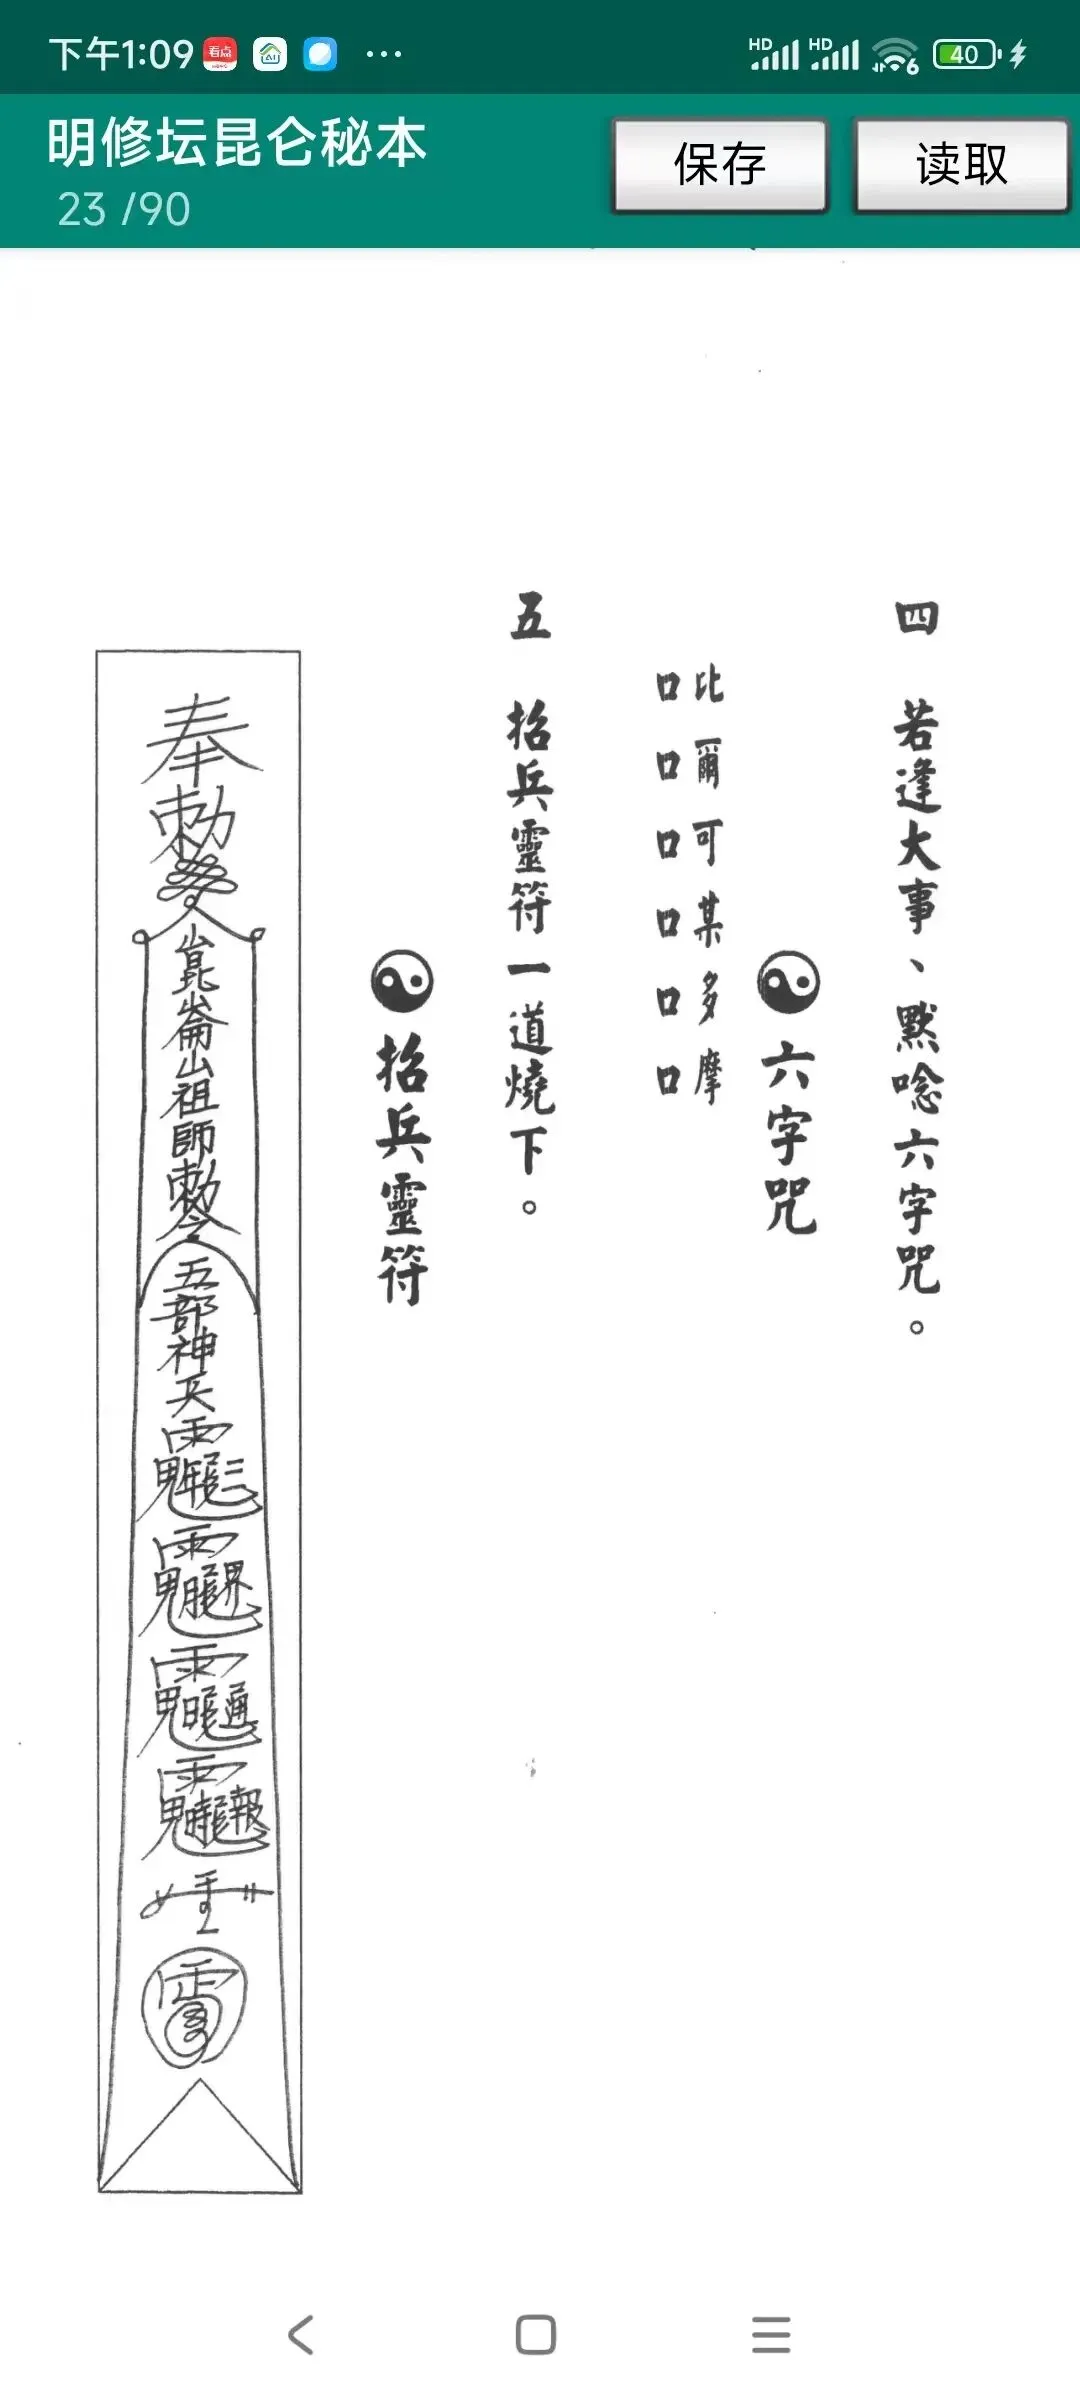 下午1:09
看点
AI
HD HD 6 40
明修坛昆仑秘本
23 /90
保存
读取
四 若逢大事、默唸六字咒。
六字咒
比爾可某多摩
口口口口口口
五 招兵靈符一道燒下。
招兵靈符
奉勅
崑崙山祖師勅令
五部神兵